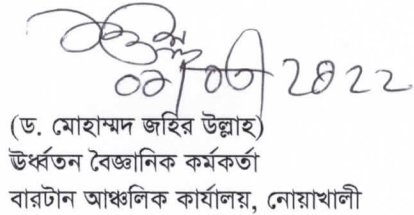 (ড. মোহাম্মদ জহির উল্লাহ)
ঊর্ধ্বতন বৈজ্ঞানিক কর্মকর্তা
বারটান আঞ্চলিক কার্যালয়, নোয়াখালী